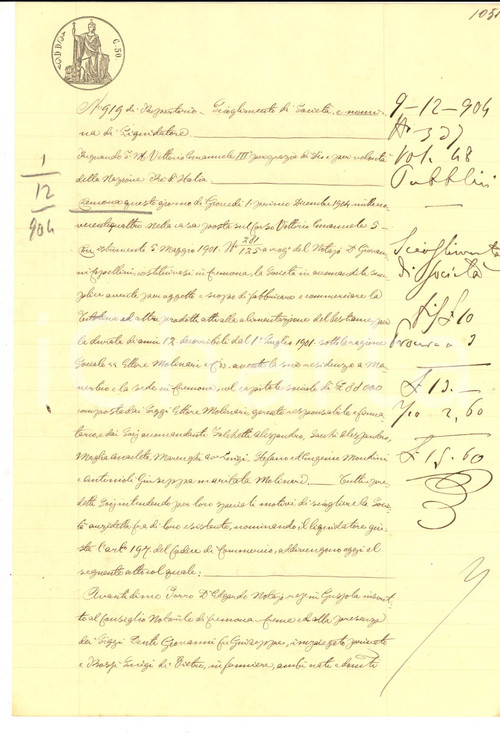 1051
C. 50
N. 919 di Repertorio - Scioglimento di Società e nomi-
na di Liquidatore.
Regnando S. M. Vittorio Emanuele III per grazia di Dio e per volontà
della Nazione Re d'Italia
Cremona questo giorno di Giovedì 1 primo Dicembre 1904 milleno-
vecentoquattro nella casa posta sul Corso Vittorio Emanuele 5 -
Con istrumento 5 Maggio 1901. N° 281/1250 a rog. del Notajo Dr Giovan-
ni Copellini, costituivasi in Cremona la Società in accomandita sem-
plice avente per oggetto e scopo di fabbricare e commerciare la
ed altri prodotti atti alla alimentazione del bestiame per
la durata di anni 12 decorribili dal 1° Luglio 1901. sotto la ragione
sociale Ettore Molinari e C. avente la sua residenza a Ma-
nerbio e la sede in Cremona, col capitale sociale di £
composta dai Sigg. Ettore Molinari, gerente responsabile e firma-
tario e dai Sig. accomandanti Falchetti Alessandro, Alessandro,
Maglia Luigi, Stefano ed Eugenio Mondini
e Antonioli Giuseppa maritata Molinari. Tutti i pre-
detti Sig. intendendo per loro speciali motivi di sciogliere la Socie-
tà anzidetta fra di loro esistente, nominando il liquidatore giu-
sta l'art. 197. del Codice di Commercio, addivengono oggi al
seguente atto col quale:
Avanti di me Porro Dr Edgardo Notajo res. in Gussola inscrit-
to al Consiglio Notarile di Cremona e Crema ed alla presenza
dei Sigg. Conti Giovanni fu Giuseppe, impiegato privato
e Luigi di Pietro, infermiere, ambi nati e domti
1
12
904
9-12-904
N° 337
Vol. 48
Pubblici
Scioglimento
di Società
£ 10
3
£ 13 -
2,60
£ 15.60